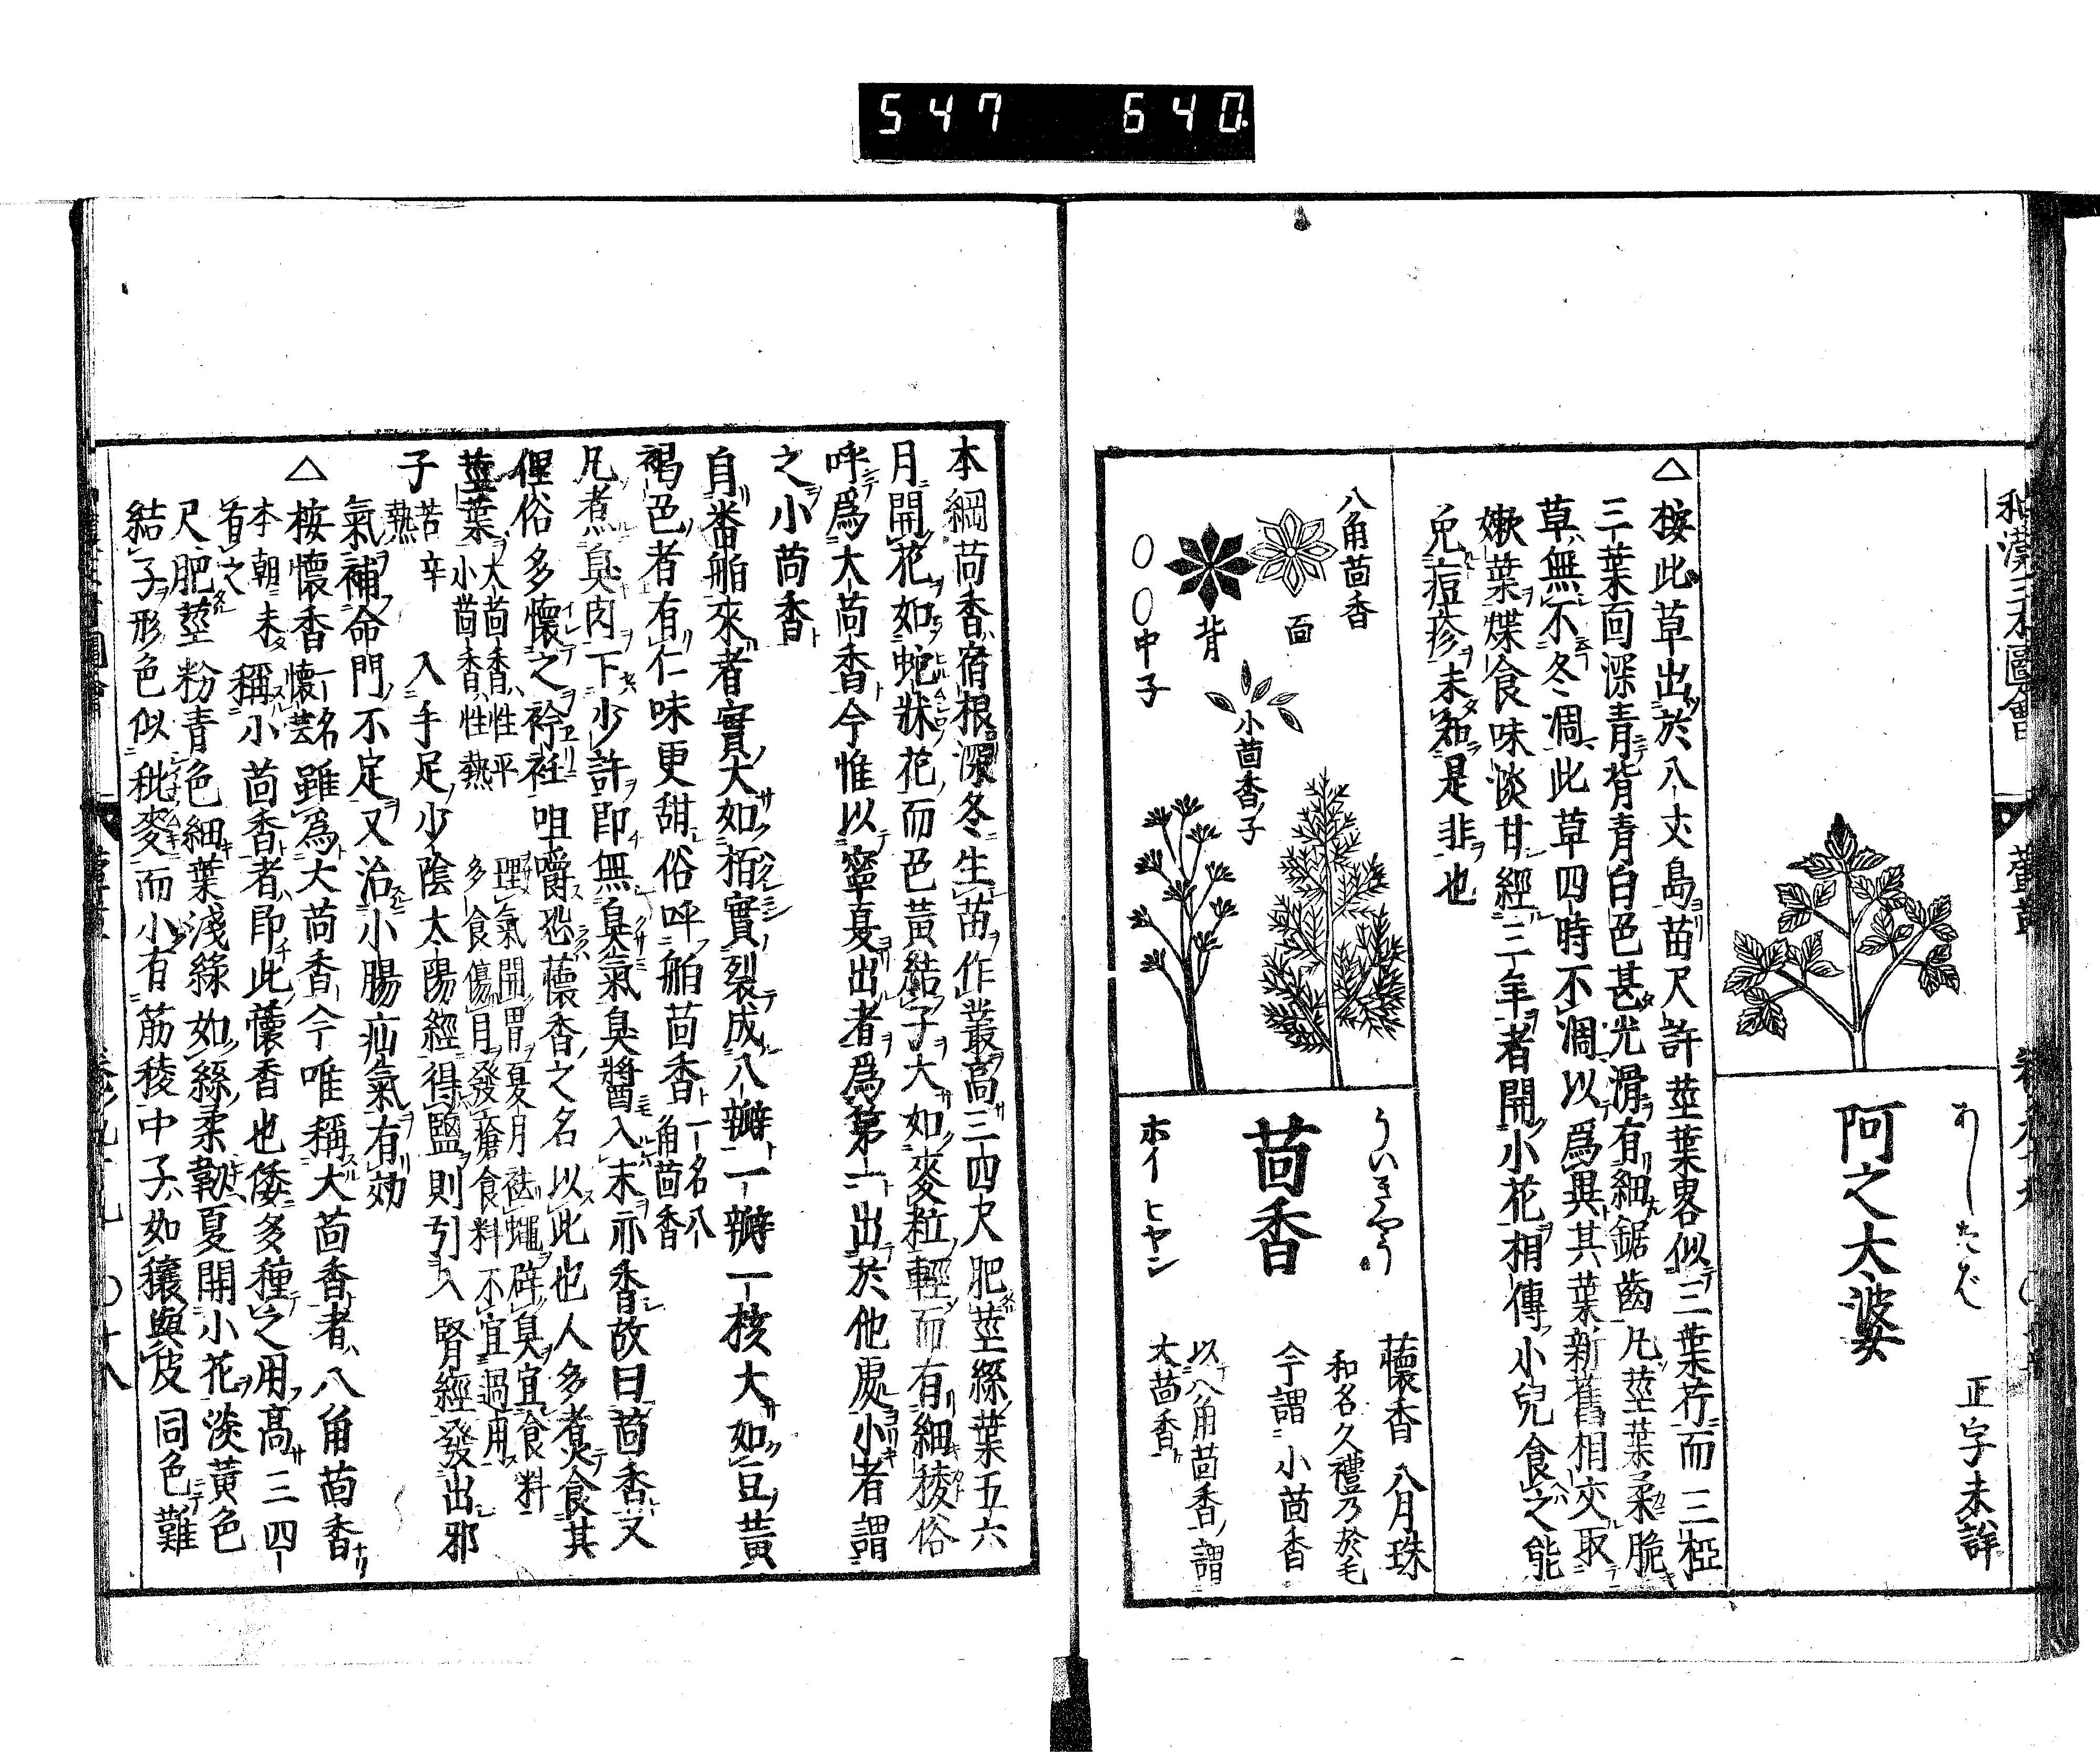 547 640
和漢三才圖會
あしたば
正字未詳
阿之太婆
△按此草出於八丈島苗尺許莖葉畧似三葉芹而三椏
三葉面深青背青白色甚光滑有細鋸齒凡莖葉柔脆
草無不冬凋此草四時不凋以爲異其葉新舊相交取
嫩葉煠食味淡甘經三年者開小花相傳小兒食之能
免痘疹未知是非也
八角茴香
面
背
中子
小茴香ノ子
ういきやう
茴香
ホイ ヒヤン
蘹香 八月珠
和名久禮乃於毛
今謂小茴香
以八角茴香ノ謂
大茴香
本綱茴香宿根深冬生苗作叢高三四尺肥莖絲葉五六
月開花如蛇牀花而色黃結子大如麥粒輕而有細稜俗
呼爲大茴香今惟以寧夏出者爲第一出於他處小者謂
之小茴香
自番舶來者實大如栢實裂成八瓣一瓣一核大如豆黃
褐色者有仁味更甜俗呼舶茴香一名八角茴香
凡煮臭肉下少許即無臭氣臭醬入末亦香故曰茴香又
俚俗多懷之衿衽咀嚼恐蘹香之名以此也人多煮食其
莖葉大茴香性平小茴香性熱理氣開胃夏月祛蠅辟臭宜食料多食傷目發瘡食料不宜過用
子苦辛熱入手足少陰太陽經得鹽則引入腎經發出邪
氣補命門不定又治小腸疝氣有効
△按懷香一名懷芸雖爲大茴香今唯稱大茴香者八角茴香
本朝未有之稱小茴香者即此蘹香也倭多種之用高三四
尺肥莖粉青色細葉淺綠如絲柔靱夏開小花淡黃色
結子形色似秕麥而小有筋稜中子如穰與皮同色難